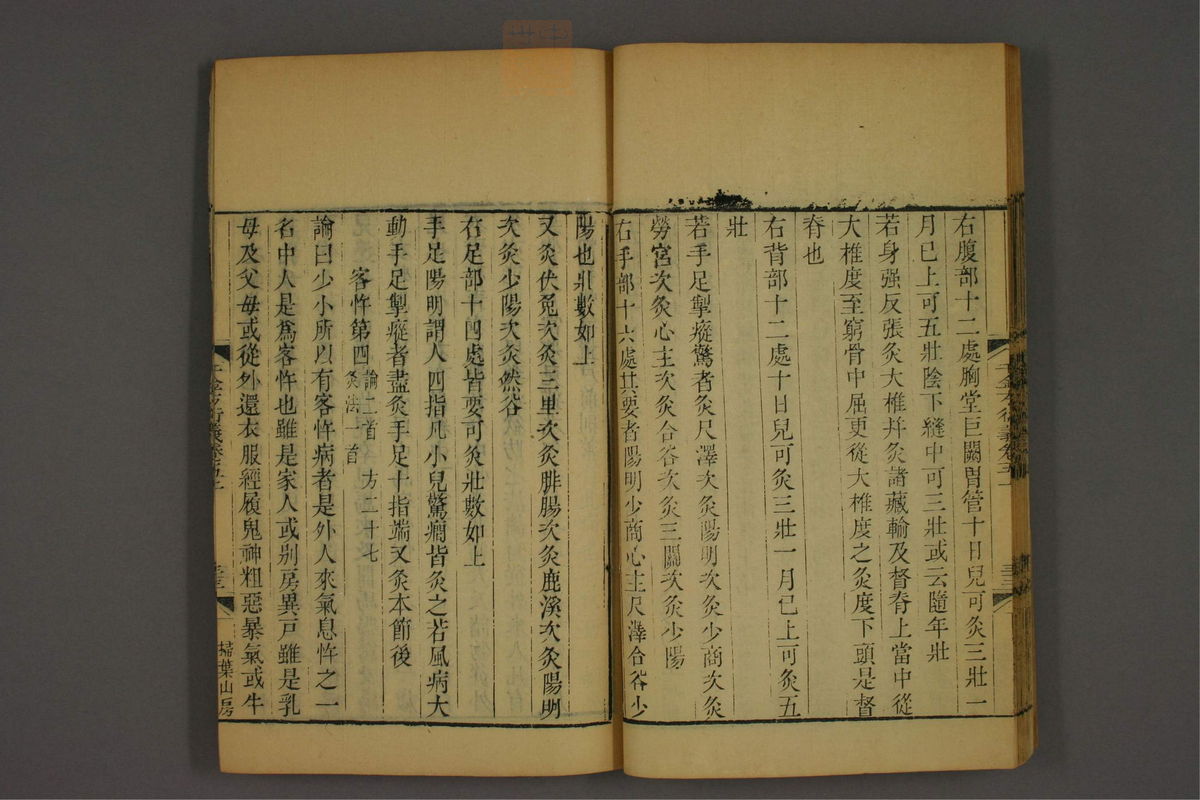 右腹部十二處胸堂巨闕胃管十日兒可灸三壯一
月已上可五壯陰下縫中可三壯或云隨年壯
若身强反張灸大椎幷灸諸藏輸及督脊上當中從
大椎度至窮骨中屈更從大椎度之灸度下頭是督
脊也
右背部十二處十日兒可灸三壯一月已上可灸五
壯
若手足掣瘲驚者灸尺澤次灸陽明次灸少商次灸
勞宮次灸心主次灸合谷次灸三關次灸少陽
右手部十六處其要者陽明少商心主尺澤合谷少
陽也壯數如上
又灸伏兔次灸三里次灸腓腸次灸鹿溪次灸陽明
次灸少陽次灸然谷
右足部十四處皆要可灸壯數如上
手足陽明謂人四指凡小兒驚癇皆灸之若風病大
動手足掣瘲者盡灸手足十指端又灸本節後
客忤第四 論二首 方二十七
灸法一首
論曰少小所以有客忤病者是外人來氣息忤之一
名中人是爲客忤也雖是家人或别房異戸雖是乳
母及父母或從外還衣服經履鬼神粗惡暴氣或牛
千金方衍義卷五上
掃葉山房